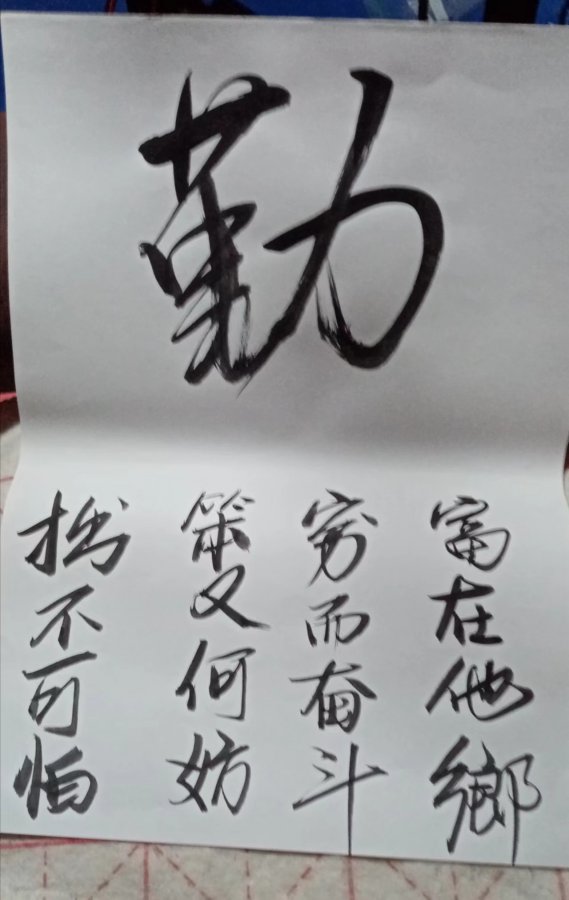 勤
富在他鄉
穷而奋斗
笨又何妨
拙不可怕